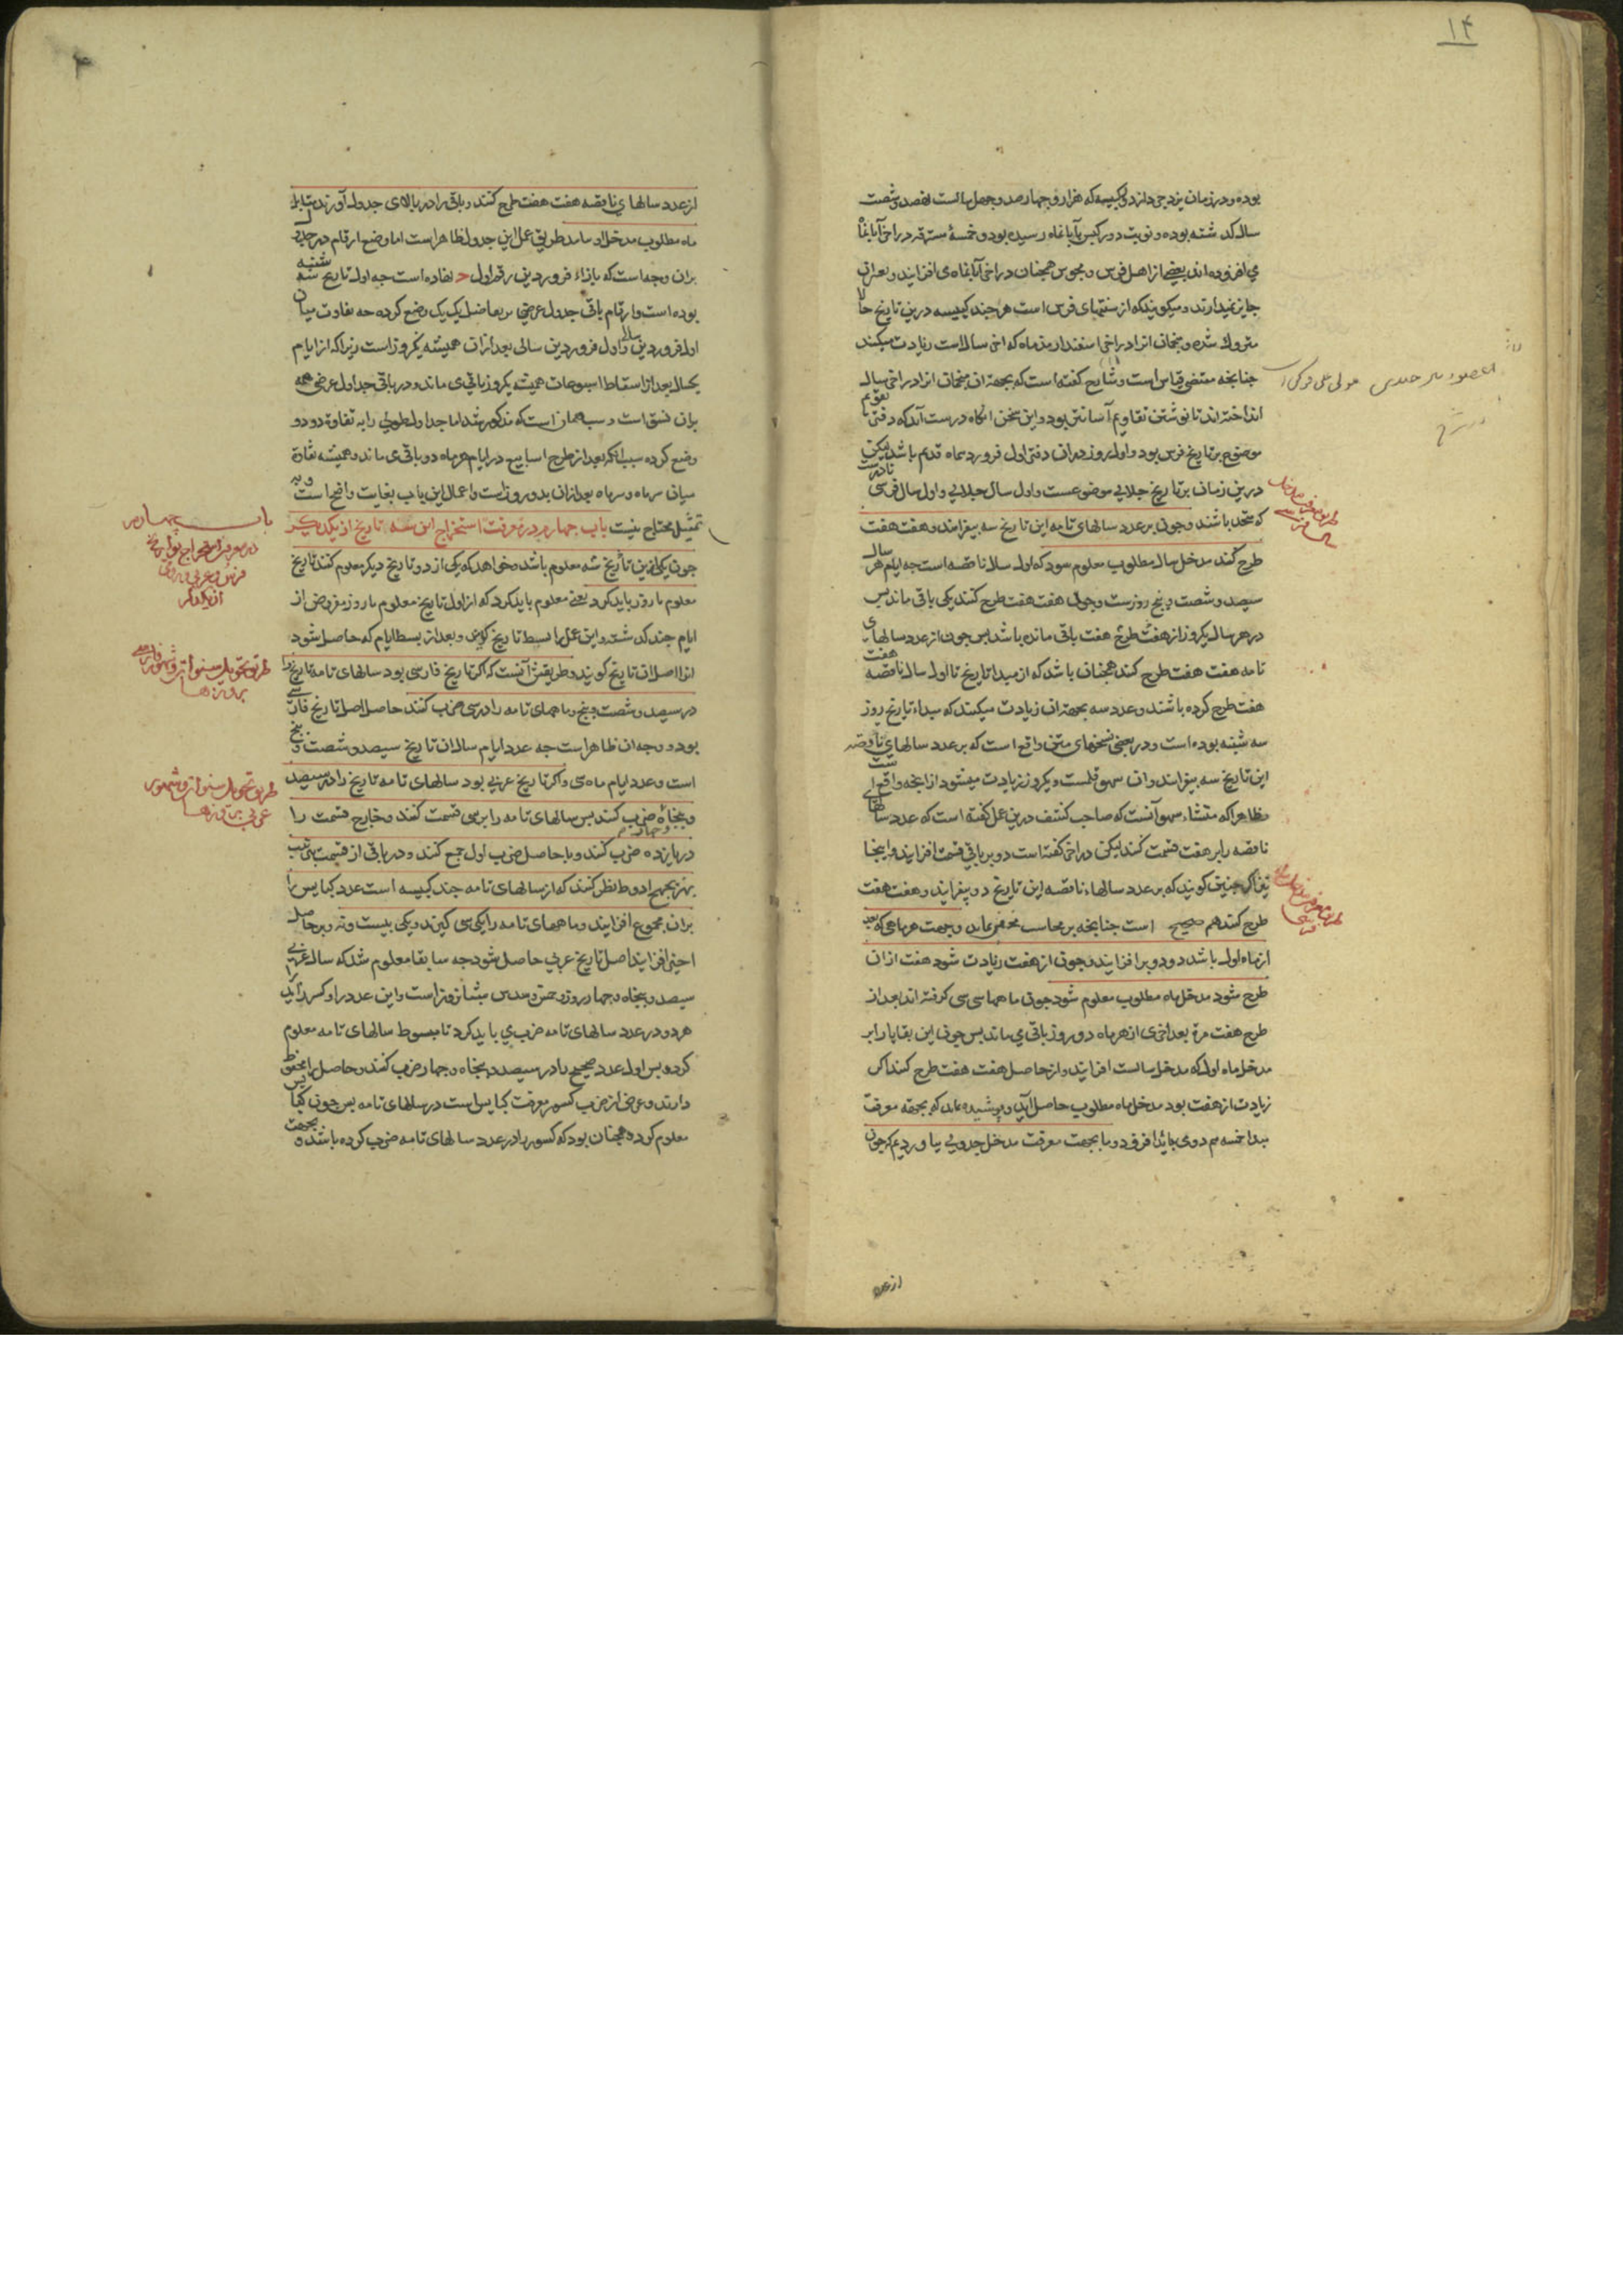 ۱۴
بوده و در زمان یزدجرد از دور کبیسه که هزار و چهارصد و چهل سالست نهصد و شصت
سال گذشته بوده و نوبت دور کبس بآبانماه رسیده بود و خمسهٔ مسترقه در اخر آبانماه
می افزوده اند بعضی از اهل فرس و مجوس همچنان در اخر آبانماه می افزایند و بعد ازان
جایز نمیدارند و میگویند که از سنتهای فرس است هر چند کبیسه درین تاریخ حالا
متروک شده و منجمان انرا در اخر اسفندارمذماه که اخر سال است زیادت میکنند
چنانچه مقتضی قیاس است و شارح گفته است که بجهت ان منجمان انرا در اخر سال
انداخته اند تا نوشتن تقاویم آسانتر بود و این سخن انگاه درست آید که دفتر تقویم
موضوع بر تاریخ فرس بود و اول روز دران دفتر اول فروردماه قدیم باشد لیکن
درین زمان بر تاریخ جلالی موضوعست و اول سال جلالی و اول سال فرسی نادرست
که متحد باشند و چون بر عدد سالهای تامه این تاریخ سه بیفزایند و هفت هفت
طرح کنند مدخل سال مطلوب معلوم شود که اول سال ناقصه است چه ایام هر سال
سیصد و شصت و پنج روزست و چون هفت هفت طرح کنند یکی باقی ماند پس
در هر سال یکروز از هفت طرح هفت باقی مانده باشد پس چون از عدد سالهای
تامه هفت هفت طرح کنند همچنان باشد که از مبدا تاریخ تا اول سال ناقصه هفت
هفت طرح کرده باشند و عدد سه بجهت ان زیادت میکنند که مبداء تاریخ روز
سه شنبه بوده است و در بعضی نسخهای متن واقع است که بر عدد سالهای ناقصه
این تاریخ سه بیفزایند و ان سهو قلمست و یکروز زیادت میشود از انچه واقع است
و ظاهرا که منشاء سهو آنست که صاحب کشف درین عمل گفته است که عدد سالهای
ناقصه را بر هفت قسمت کنند لیکن در اخر گفته است دو بر باقی قسمت افزایند و اینجا
نیز اگر چنین گویند که بر عدد سالهاء ناقصه این تاریخ دو بیفزایند و هفت هفت
طرح کنند هم صحیح است چنانچه بر محاسب مخفی نماند و بجهت هر ماهی که بعد
از ماه اول باشد دو دو بر افزایند و چون از هفت زیادت شود هفت ازان
طرح شود مدخل ماه مطلوب معلوم شود چون ماهها سی سی گرفته اند بعد از
طرح هفت مرة بعد اخری از هر ماه دو روز باقی می ماند پس چون این بقایا را بر
مدخل ماه اول که مدخل سالست افزایند و از حاصل هفت هفت طرح کنند اگر
زیادت از هفت بود مدخل ماه مطلوب حاصل آید و پوشیده نماند که بجهة معرفت
مبدا خمسه هم دو می باید افزود و ما بجهت معرفت مدخل جدولی بیاوردیم که چون
از عدد
از عدد سالهای ناقصه هفت هفت طرح کنند و باقی را در بالای جدول آورند مقابل
ماه مطلوب مدخل او یابند و طریق عمل این جدول ظاهر است اما وضع ارقام در جدول
بران وجه است که بازاء فروردین رقم اول ج نهاده است چه اول تاریخ سه شنبه
بوده است و ارقام باقی جدول عرضی بتفاضل یک یک وضع کرده چه تفاوت میان
اول فروردین سالی و اول فروردین سالی بعد ازان همیشه یکروز است زیرا که از ایام
یکسال بعد از اسقاط اسبوعات همیشه یکروز باقی می ماند و در باقی جداول عرضی همه
بران نسق است و سبب همان است که مذکور شد اما جداول طولی را به تفاوت دو دو
وضع کرده بسبب انکه بعد از طرح اسابیع در ایام هر ماه دو باقی می ماند و همیشه تفاوت
میان سر ماه و سر ماه بعد ازان بدو روز است و اعمال این باب بغایت واضح است و به
تمثیل محتاج نیست باب چهارم در معرفت استخراج این سه تاریخ از یکدیگر
چون یکی ازین تاریخ سه معلوم باشد و خواهد که یکی از دو تاریخ دیگر معلوم کنند تاریخ
معلوم را روز باید کرد یعنی معلوم باید کرد که از اول تاریخ معلوم تا روز مفروض از
ایام چند گذشته و این عمل را بسط تاریخ گویند و بعد از بسط ایام که حاصل شود
انرا اصل ان تاریخ گویند و طریقش آنست که اگر تاریخ فارسی بود سالهای تامه تاریخ را
در سیصد و شصت و پنج و ماههای تامه را در سی ضرب کنند حاصل اصل تاریخ فارسی
بود و وجه ان ظاهر است چه عدد ایام سال ان تاریخ سیصد و شصت و پنج
است و عدد ایام ماه سی و اگر تاریخ عربی بود سالهای تامه تاریخ را در سیصد
و پنجاه ضرب کنند پس سالهای تامه را بر سی قسمت کنند و خارج قسمت را
در یازده ضرب کنند و با حاصل ضرب اول جمع کنند و در باقی از قسمت
نظر کنند که از سالهای تامه چند کبیسه است عدد کبایس را
بران مجموع افزایند و ماههای تامه را یکی سی گیرند و یکی بیست و نه و بر حاصل
اخیر افزایند اصل تاریخ عربی حاصل شود چه سابقا معلوم شد که سال عربی
سیصد و پنجاه و چهار روز و خمس و سدس شبانروز است و این عدد را و کسر زاید
هر دو در عدد سالهای تامه ضرب می باید کرد تا مبسوط سالهای تامه معلوم
کردد پس اول عدد صحیح را در سیصد و پنجاه و چهار ضرب کنند و حاصل را محفوظ
دارند و غرض از ضرب کسر معرفت کبایس است در سالهای تامه پس چون کبایس
معلوم کردد همچنان بود که کسور را در عدد سالهای تامه ضرب کرده باشند بجهت
باب چهارم
در معرفت استخراج تواریخ
از یکدیگر